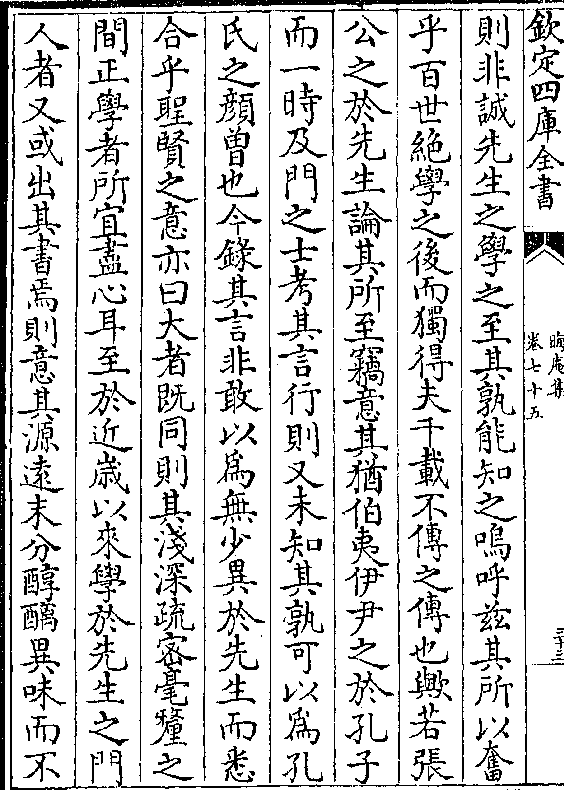 欽定四庫全書
晦庵集
卷七十五
三十三
則非誠先生之學之至其孰能知之嗚呼兹其所以奮
乎百世絶學之後而獨得夫千載不傳之傳也歟若張
公之於先生論其所至竊意其猶伯夷伊尹之於孔子
而一時及門之士考其言行則又未知其孰可以為孔
氏之顔曾也今錄其言非敢以為無少異於先生而悉
合乎聖賢之意亦曰大者既同則其淺深疏密毫釐之
間正學者所宜盡心耳至於近歲以來學於先生之門
人者又或出其書焉則意其源遠末分醇醨異味而不